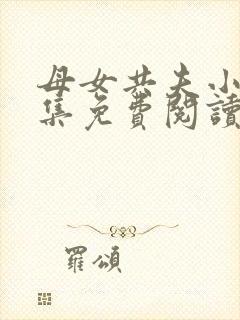 母女共夫小
集免費閱讀
羅頌